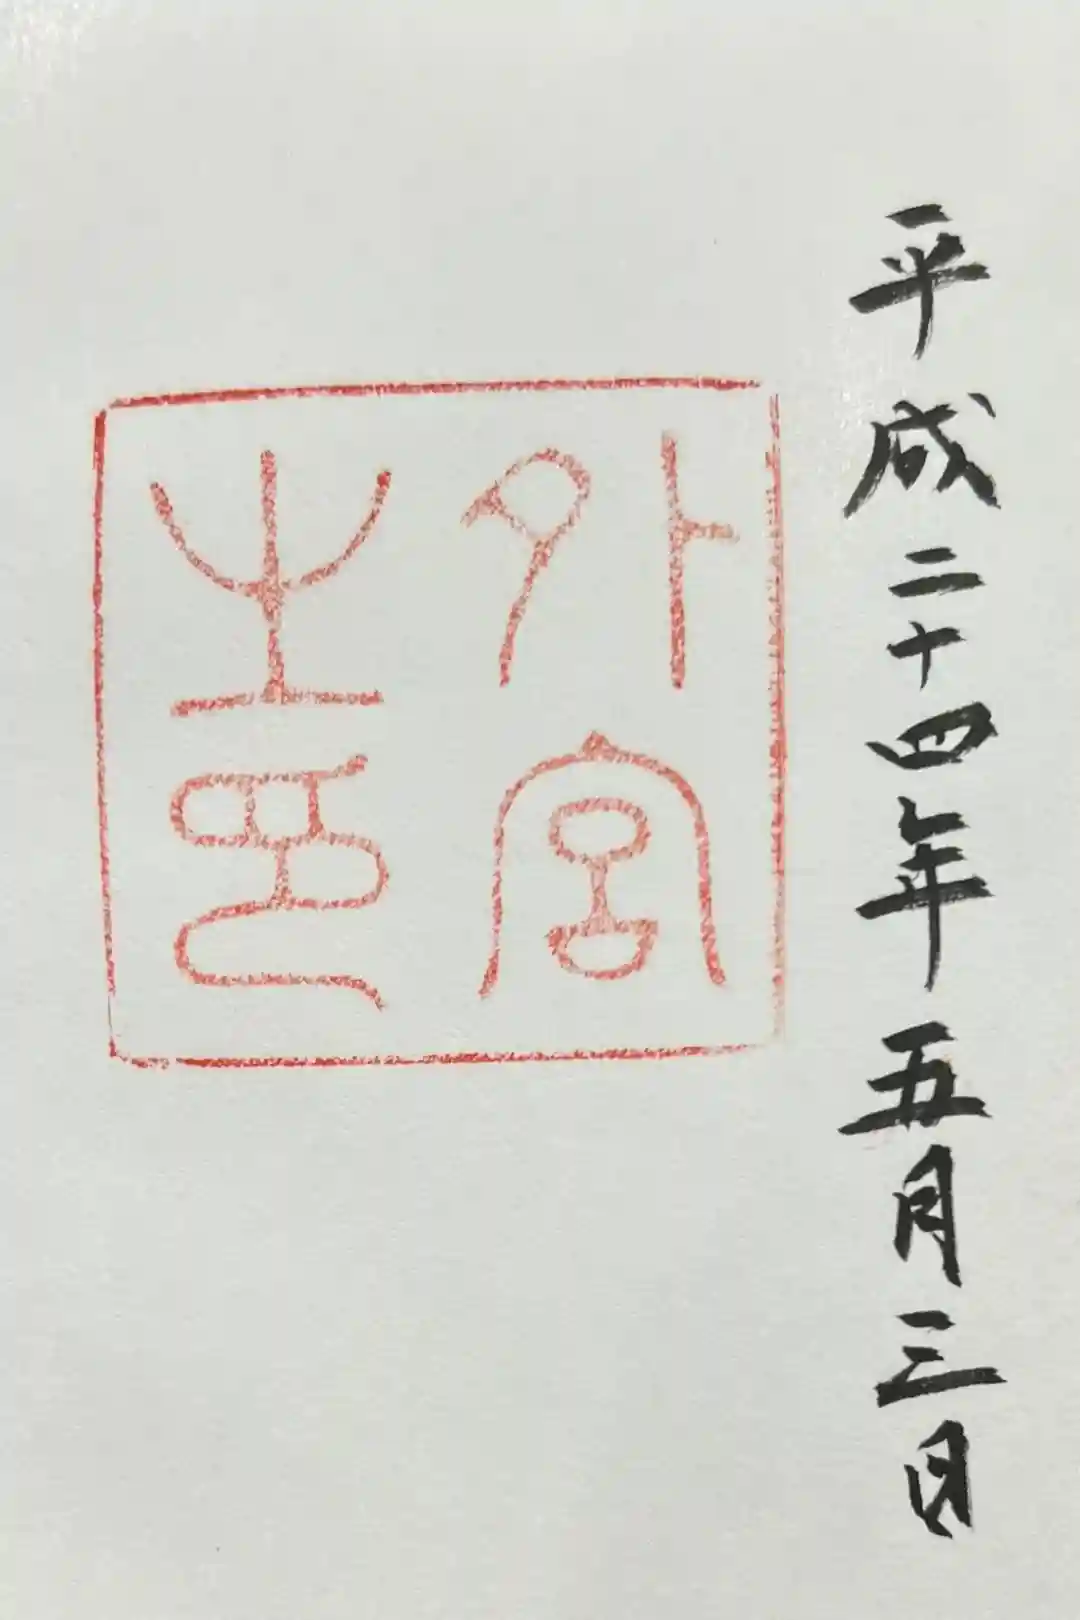 平成二十四年五月三日
外宮
之印